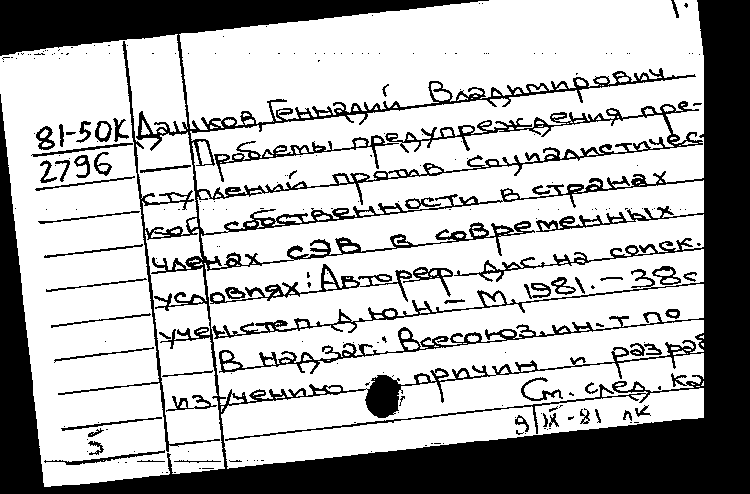 1.
81-50К Дашков, Геннадий Владимирович
2796 Проблемы предупреждения пре-
ступлений против социалистичес-
кой собственности в странах
членах СЭВ в современных
условиях: Автореф. дис. на соиск.
учен. степ. д. ю. н. - М., 1981. - 38с
В надзаг.: Всесоюз. ин-т по
изучению причин и разраб
См. след. ка
5
9/IX-81 лк